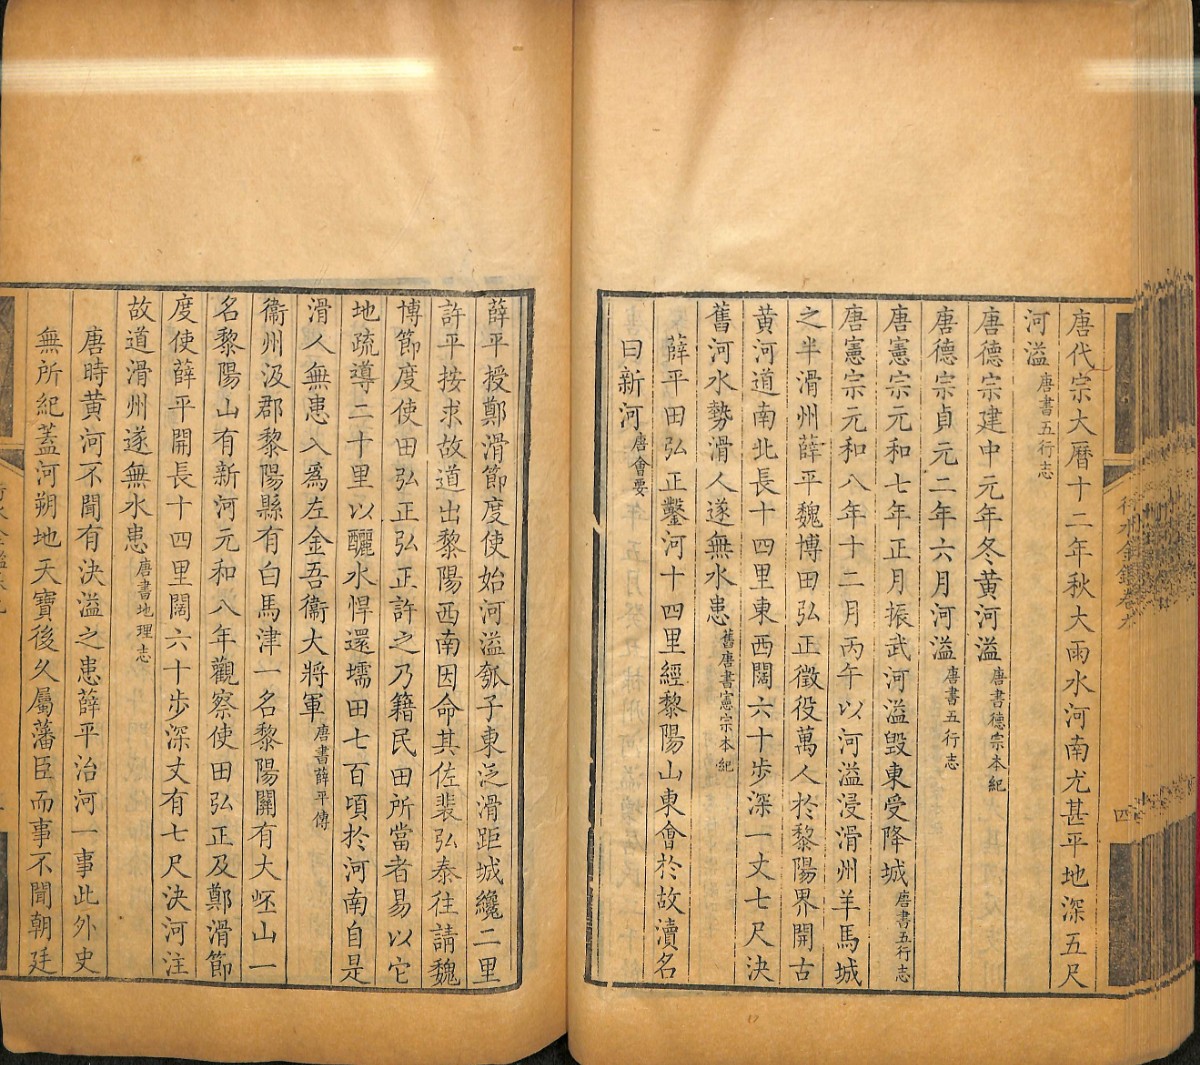 唐代宗大曆十二年秋大雨水河南尤甚平地深五尺
河溢唐書五行志
唐德宗建中元年冬黃河溢唐書德宗本紀
唐德宗貞元二年六月河溢唐書五行志
唐憲宗元和七年正月振武河溢毀東受降城唐書五行志
唐憲宗元和八年十二月丙午以河溢浸滑州羊馬城
之半滑州薛平魏博田弘正徵役萬人於黎陽界開古
黃河道南北長十四里東西闊六十步深一丈七尺決
舊河水勢滑人遂無水患舊唐書憲宗本紀
薛平田弘正鑿河十四里經黎陽山東會於故瀆名
曰新河唐會要
行水金鑑卷九
四
薛平授鄭滑節度使始河溢瓠子東泛滑距城纔二里
許平按求故道出黎陽西南因命其佐裴弘泰往請魏
博節度使田弘正弘正許之乃籍民田所當者易以它
地疏導二十里以釃水悍還壖田七百頃於河南自是
滑人無患入爲左金吾衞大將軍唐書薛平傳
衞州汲郡黎陽縣有白馬津一名黎陽關有大岯山一
名黎陽山有新河元和八年觀察使田弘正及鄭滑節
度使薛平開長十四里闊六十步深丈有七尺決河注
故道滑州遂無水患唐書地理志
唐時黃河不聞有決溢之患薛平治河一事此外史
無所紀蓋河朔地天寶後久屬藩臣而事不聞朝廷